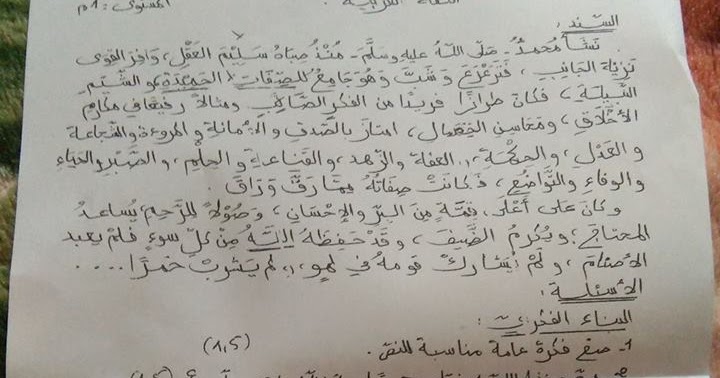 اللغة العربية المستوى: 1م
السند:
نشأ محمد - صلى الله عليه وسلم - منذ صباه سليم العقل، وافر القوى
نزيه الجانب، فترعرع وشب وهو جامع للصفات الحميدة والشيم
النبيلة، فكان طرازا فريدا من الفكر الصائب ومثالا رفيعا في مكارم
الأخلاق، ومحاسن الخصال، امتاز بالصدق والأمانة والمروءة والشجاعة
والعدل، والحكمة، العفة والزهد، والقناعة والحلم، والصبر والحياء
والوفاء والتواضع، فكانت صفاته
وكان على أعلى قمة من البر والإحسان، وصولا للرحم، يساعد
المحتاج، ويكرم الضيف، وقد حفظه الله من كل سوء فلم يعبد
الأصنام، ولم يشارك قومه في لهو، ولم يشرب خمرا....
الأسئلة:
البناء الفكري:
1- صغ فكرة عامة مناسبة للنص. (1,5)